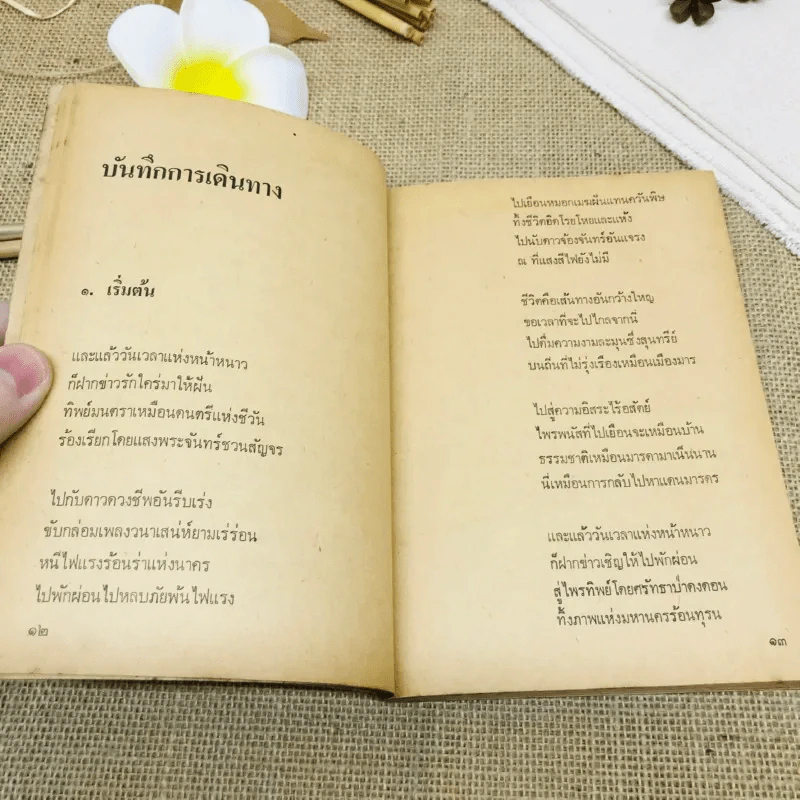 บันทึกการเดินทาง
๑. เริ่มต้น
และแล้ววันเวลาแห่งหน้าหนาว
ก็ฝากข่าวรักใคร่มาให้ฝัน
ทิพย์มนตราเหมือนดนตรีแห่งชีวัน
ร้องเรียกโดยแสงพระจันทร์ชวนสัญจร
ไปกับดาวดวงชีพอันรีบเร่ง
ขับกล่อมเพลงวนาเสน่ห์ยามเร่ร่อน
หนีไฟแรงร้อนร่าแห่งนาคร
ไปพักผ่อนไปหลบภัยพ้นไฟแรง
๑๒
ไปเยือนหมอกเมฆฝนแทนควันพิษ
ทิ้งชีวิตอิดโรยโหยและแห้ง
ไปนับดาวจ้องจันทร์อันแจรง
ณ ที่แสงสีไฟยังไม่มี
ชีวิตคือเส้นทางอันกว้างใหญ่
ขอเวลาที่จะไปไกลจากนี่
ไปดื่มความงามละมุนซึ่งสุนทรีย์
บนถิ่นที่ไม่รุ่งเรืองเหมือนเมืองมาร
ไปสู่ความอิสระไร้อสัตย์
ไพรพนัสที่ไปเยือนจะเหมือนบ้าน
ธรรมชาติเหมือนมารดามาเนิ่นนาน
นี่เหมือนการกลับไปหาแดนมารดร
และแล้ววันเวลาแห่งหน้าหนาว
ก็ฝากข่าวเชิญให้ไปพักผ่อน
สู่ไพรทิพย์โดยศรัทธาป่าดงดอน
ทิ้งภาพแห่งมหานครร้อนทุรน
๑๓